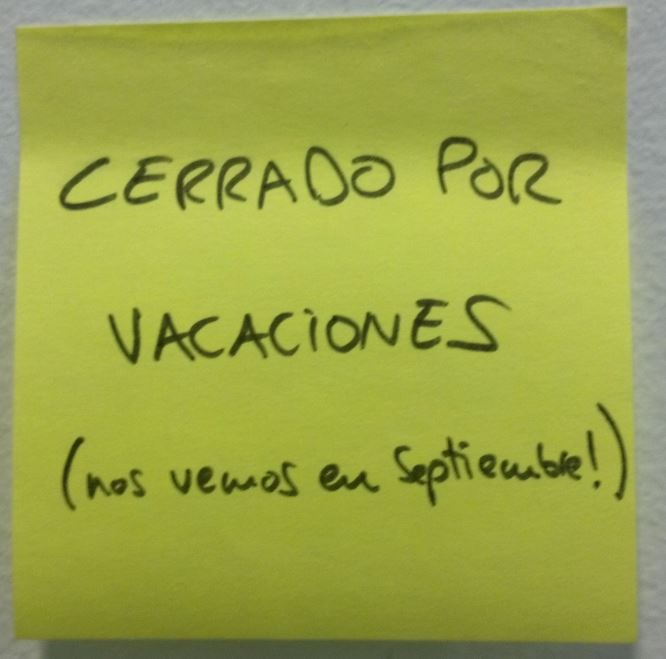 CERRADO POR
VACACIONES
(nos vemos en Septiembre!)